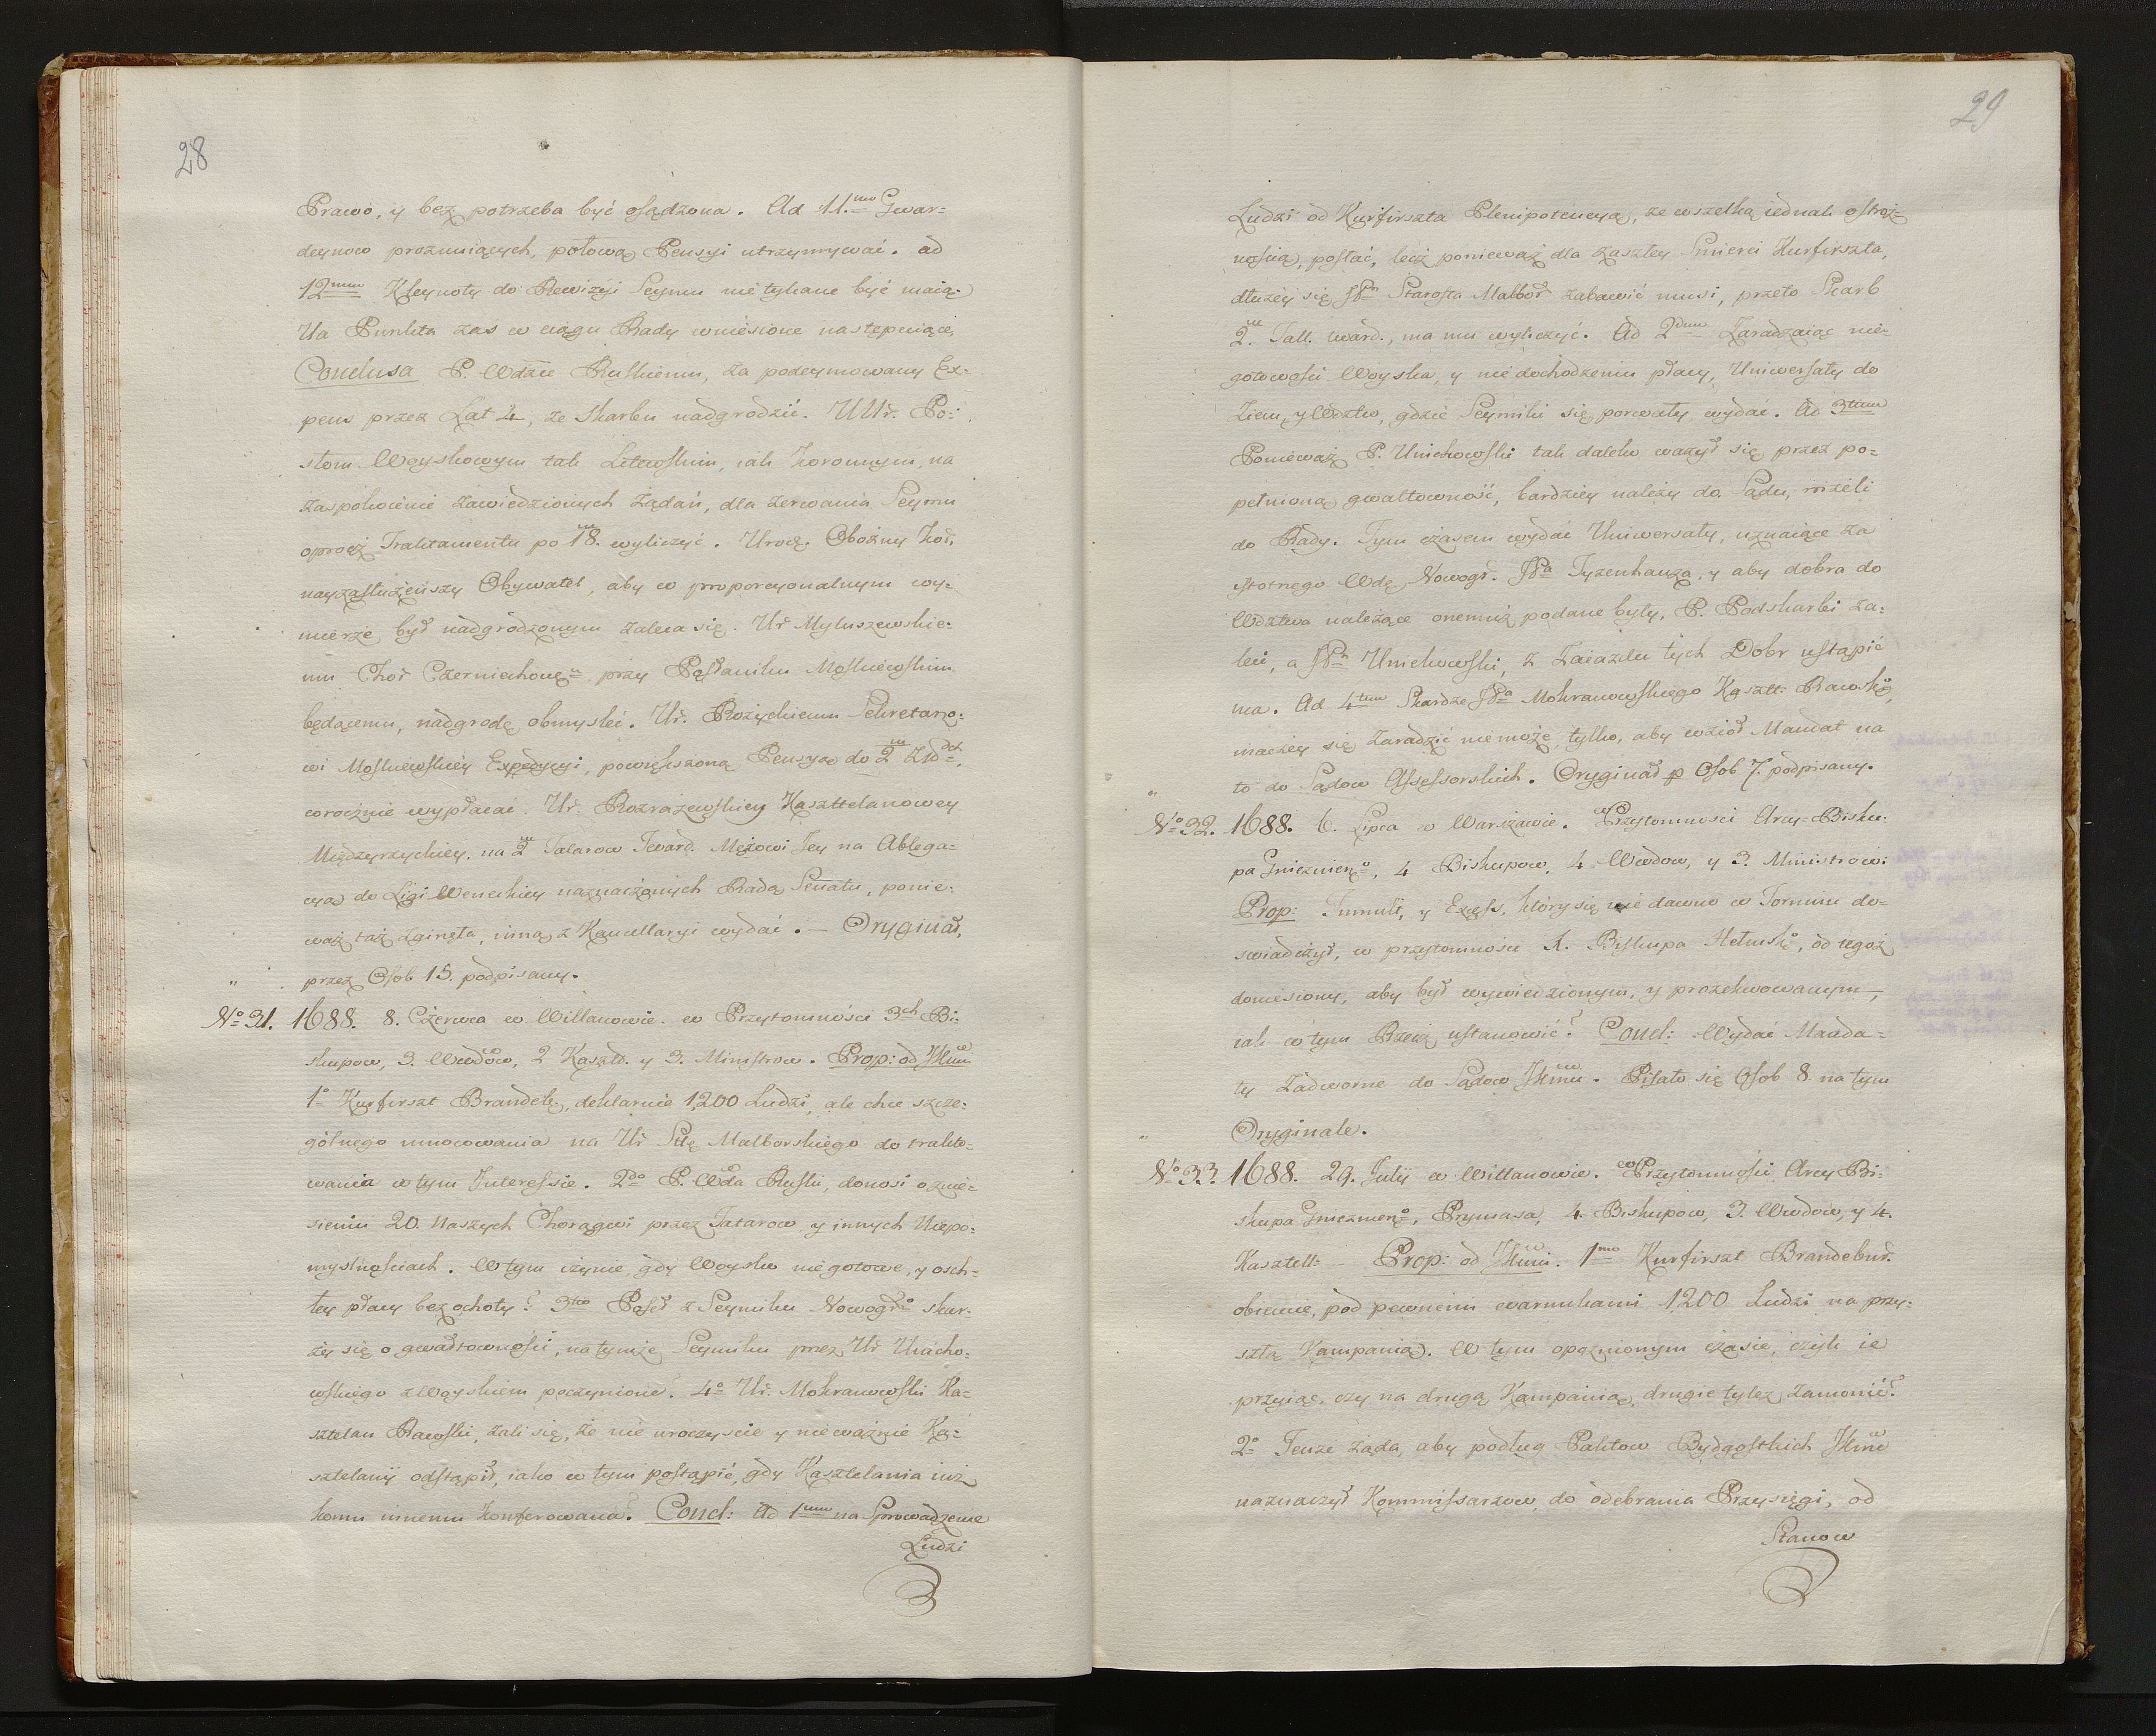 28
Prawo, y bez potrzeba być osądzona. Ad 11.mo Gwar=
deynow prozniuiących, połową Pensyi utrzymywać. ad
12mum Kleynoty do Rewizyi Seymu nie tykane być maią.
Na Punkta zas w ciągu Rady wniesione następuiące,
Conclusa P. Wdzie Ruskiemu, za podeymowany Ex=
pens przez Lat 4, ze Skarbu nadgrodzić. UUr. Po=
słom Woyskowym tak Litewskim, iak Koronnym, na
zaspokoienie zawiedzionych Żądań, dla zerwania Seymu
oprocz Traktamentu po 18.m wyliczyć. Urodz. Oboźny Kor.
nayzasłużeńszy Obywatel, aby w proporcyonalnym wy=
mierze, był nadgrodzonym zaleca się. Ur Myluszewskie=
mu Chor Czerniechow. przy Posłaniku Moskiewskim
będącemu, nadgrodę obmyslić. Ur. Rożyckiemu Sekretarzo=
wi Moskiewskiey Expedycyi, powiększoną Pensyą do 2m Złotch,
corocznie wypłacać. Ur. Rozrażewskiey Kasztelanowey
Międzyrzyckiey, na 2m Talarow Tward. Mężowi Jey na Ablega=
cyą do Ligi Weneckiey naznaczonych Radą Senatu, ponie=
waż taż zginęła, inną z Kancellaryi wydać. — Oryginał,
" przez Osob 15. podpisany.
No 31. 1688. 8. Czerwca w Willanowie. w Przytomności 3ch Bi=
skupow, 3. Wwdow, 2 Kasztd. y 3. Ministrow. Prop: od JKmci
1o Kurfirszt Brandeb., deklaruie 1200 Ludzi, ale chce szcze=
gólnego umocowania na Ur Stę Malborskiego do trakto=
wania w tym Interessie. 2do P. Wda Ruski, donosi o znie=
sieniu 20. Naszych Chorągwi przez Tatarow, y innych Niepo=
myslnościach. W tym czynie, gdy Woysko nie gotowe, y osch=
łey płacy bez ochoty? 3tio Poseł z Seymiku Nowogro skar=
ży się o gwałtowności, na tymże Seymiku przez Ur Unicho=
wskiego z Woyskiem poczynione? 4o Ur. Mokranowski Ka=
sztelan Rawski, żali się, że nie uroczyscie y nieważnie Ka=
sztelanij odstąpił, iako w tym postąpić, gdy Kasztelania iuż
komu innemu konferowana? Concl: Ad 1mum na Sprowadzenie
Ludzi
29
Ludzi od Kurfirszta Plenipotencyą, ze wszelką iednak ostroż=
nością, posłać, lecz ponieważ dla zaszłey Smierci Kurfirszta,
dłużey się JPn Starosta Malbor zabawić musi, przeto Skarb
2.m Tall. tward., ma mu wyliczyć. Ad 2dum Zaradzaiąc nie=
gotowości Woyska, y nie dochodzeniu płacy, Uniwersały do
Ziem, y Wdztw, gdzie Seymiki się porwały, wydać. Ad 3tium
Ponieważ P. Unichowski tak daleko ważył się, przez po=
pełnioną gwałtowność, bardziey należy do Sądu, niżeli
do Rady. Tym czasem wydać Uniwersały, uznaiące za
istotnego Wdę Nowogr. JPa Tyzenhauza, y aby dobra do
Wdztwa należące onemuż podane były, P. Podskarbi za=
leci, a JPn Unichowski, z Zaiazdu tych Dobr ustąpić
ma. Ad 4tum Skardze JPa Mokranowskiego Kasztt: Rawsko,
inaczey się zaradzić nie może, tylko, aby wzioł Mandat na
" to do Sądow Assessorskich. Oryginał p Osob 7. podpisany.
No 32. 1688. 6. Lipca w Warszawie. w Przytomnosci Arcy-Bisku=
pa Gnieznieno, 4 Biskupow, 4 Wwdow, y 3. Ministrow.
Prop: Tumult, y Excess, który się nie dawno w Toruniu do=
swiadczył, w przytomności X. Biskupa Hełmsko, od tegoż
doniesiony, aby był wywiedzionym, y prozekwowanym,
iak w tym Rzecz ustanowić? Concl: Wydać Manda=
ty Zadworne do Sądow JKmci. Pisało się Osob 8 na tym
" Oryginale.
No 33. 1688. 29. Julij w Willanowie. w Przytomności Arcy Bi=
skupa Gnieznieno, Prymasa, 4. Biskupow, 3. Wwdow, y 4.
Kasztell: — Prop: od JKmci. 1mo Kurfirszt Brandebur.
obiecuie, pod pewnemi warunkami 1200 Ludzi na przy=
szłą Kampanią. W tym opoznionym czasie, czyli ie
przyiąc, czy na drugą Kampanią, drugie tylez zamowić?
2o Tenże żąda, aby podług Paktow Bydgoskich JKmć
naznaczył Kommissarzow, do odebrania Przysięgi, od
Stanow